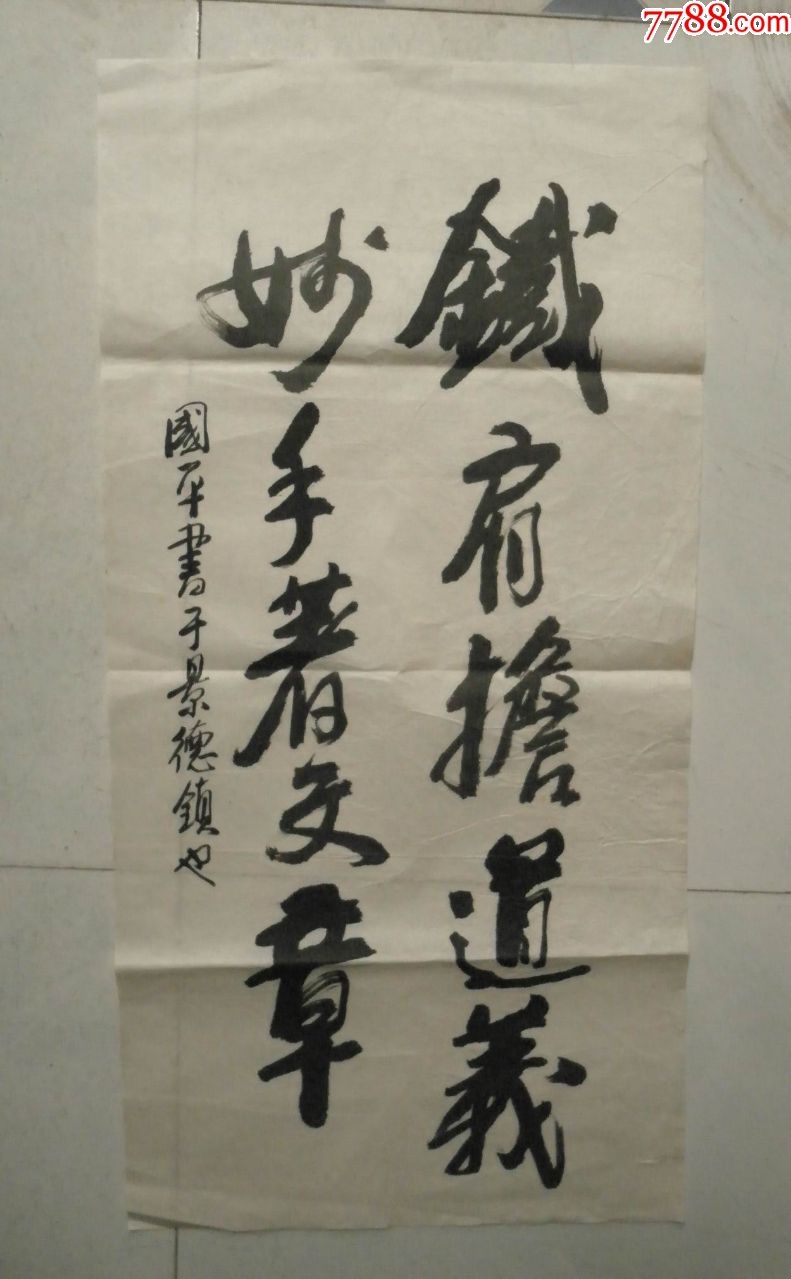 7788.com
鐵肩擔道義
妙手著文章
國平書于景德鎮也